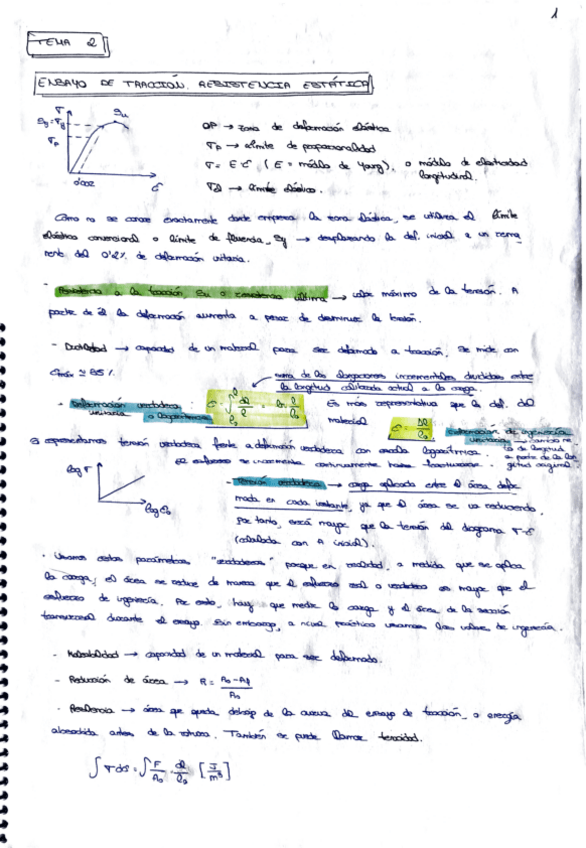 1
TEMA 2
ENSAYO DE TRACCIÓN. RESISTENCIA ESTÁTICA
σ
Su
Sy=σy
σp
0'002
ε
OP → zona de deformación elástica
σp → límite de proporcionalidad
σ = E·ε (E = módulo de Young), o módulo de elasticidad
longitudinal.
σel → límite elástico.
Como no se conoce exactamente donde empieza la zona plástica, se utiliza el límite
elástico convencional o límite de fluencia, Sy → desplazando la def. inicial a un rema
nente del 0'2% de deformación unitaria.
- Resistencia a la tracción, Su o resistencia última → valor máximo de la tensión. A
partir de él la deformación aumenta a pesar de disminuir la tensión.
- Ductilidad → capacidad de un material para ser deformado a tracción. Se mide con
εmáx ≃ 85%
suma de las elongaciones incrementales divididas entre
la longitud calibrada actual a la carga.
- Deformación verdadera
unitaria o logarítmica
ε = ∫ dl/l = ln l/l₀
Es más representativa que la def. del
material
ε = Δl/l₀
Deformación de ingeniería
unitaria → cambio re
to de longitud
a partir de la lon
gitud original
Si representamos tensión verdadera frente a deformación verdadera con escala logarítmica.
el esfuerzo se incrementa continuamente hasta fracturarse.
log σ
log ε₀
- Tensión verdadera → carga aplicada entre el área defor
mada en cada instante, ya que el área se va reduciendo.
Por tanto, será mayor que la tensión del diagrama σ-ε
(calculada con A inicial).
· Usamos estos parámetros "verdaderos" porque en realidad, a medida que se aplica
la carga, el área se reduce de manera que el esfuerzo real o verdadero es mayor que el
esfuerzo de ingeniería. Por esto, hay que medir la carga y el área de la sección
transversal durante el ensayo. Sin embargo, a nivel práctico usaremos los valores de ingeniería.
- Maleabilidad → capacidad de un material para ser deformado.
- Reducción de área → R = A₀-Af/A₀
- Resiliencia → área que queda debajo de la curva del ensayo de tracción, o energía
absorbida antes de la rotura. También se puede llamar tenacidad.
∫ σ dε = ∫ F/A₀ · dl/l₀ [J/m³]